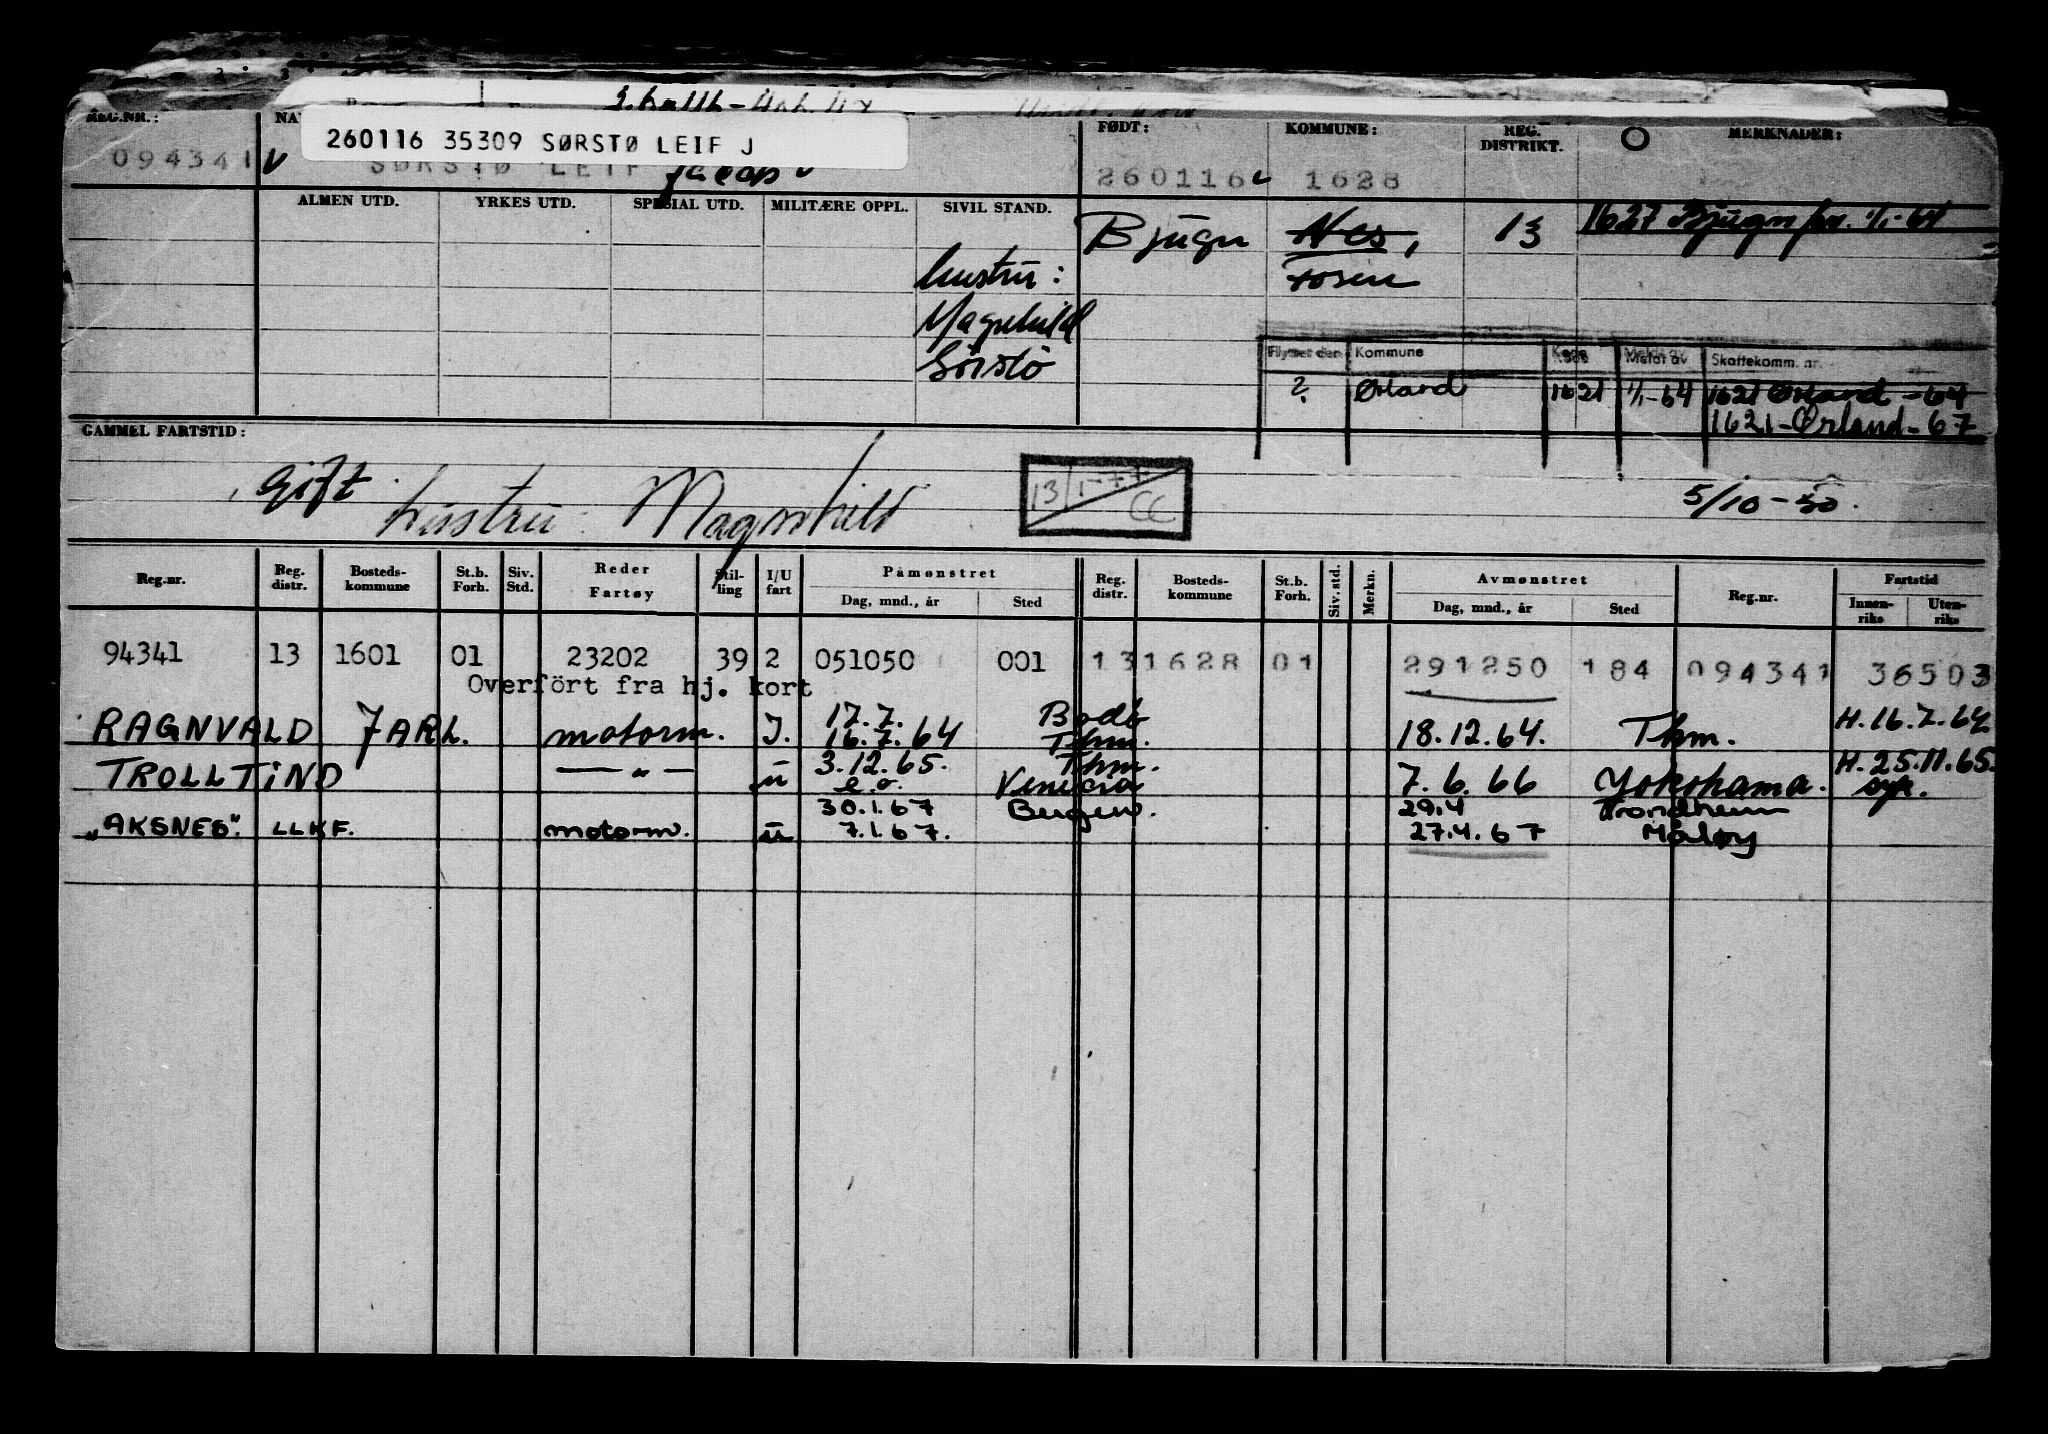 REG.NR.: FØDT: KOMMUNE: REG. DISTRIKT. O MERKNADER:
260116 35309 SØRSTØ LEIF J
094341 SØRSTØ LEIF Jacob 260116 1628
ALMEN UTD. YRKES UTD. SPESIAL UTD. MILITÆRE OPPL. SIVIL STAND.
Bjugn Nes, 13 1627 Bjugn 1/1-64
hustru: Fosen
Magnhild
Sörstö
Flyttet den Kommune Kode Meldt av Skattekomm. nr.
? Ørland 1621 1/1-64 1621 Ørland -64
1621-Ørland-67
GAMMEL FARTSTID:
Gift hustru: Magnhild 13/1-77 CC 5/10-50.
Reg.nr. Reg. distr. Bosteds-kommune St.b. Forh. Siv. Std. Reder Fartøy Stil-ling I/U fart Påmønstret Dag, mnd., år Sted Reg. distr. Bosteds-kommune St.b. Forh. Siv. std. Merkn. Avmønstret Dag, mnd., år Sted Reg.nr. Fartstid Innen-riks Uten-riks
94341 13 1601 01 23202 39 2 051050 001 13 1628 01 291250 184 094341 36503
Overfört fra hj. kort
17.7. Bodö
RAGNVALD JARL. motorm. I. 16.7.64 Thm. 18.12.64. Thm. H.16.7.64
3.12.65. Thm. H.25.11.65.
TROLLTIND —"— u e.o. Venezia 7.6.66 Yokohama. syk.
30.1.67 Bergen. 29.4 Trondheim
"AKSNES". LLKF. motorm. u 7.1.67. 27.4.67 Måløy